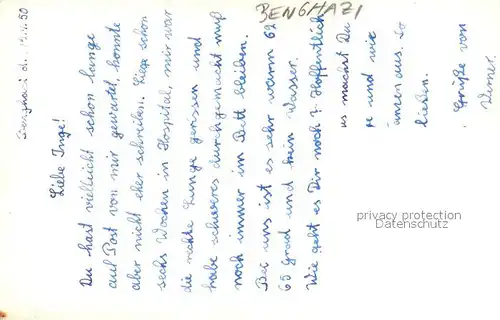 BENGHAZI
Benghazi d. 50
Liebe Inge!
Du hast vielleicht schon lange
auf Post von mir gewartet, konnte
aber nicht eher schreiben. Liege schon
sechs Wochen in Hospital, mir war
die rechte Lunge gerissen und
habe schweres durchgemacht muß
noch immer im Bett bleiben.
Bei uns ist es sehr warm 62
65 Grad und kein Wasser.
Wie geht es Dir noch? Hoffentlich
us machst Du
te und wie
aus. So
ließen.
Grüße von
Werner.
privacy protection
Datenschutz